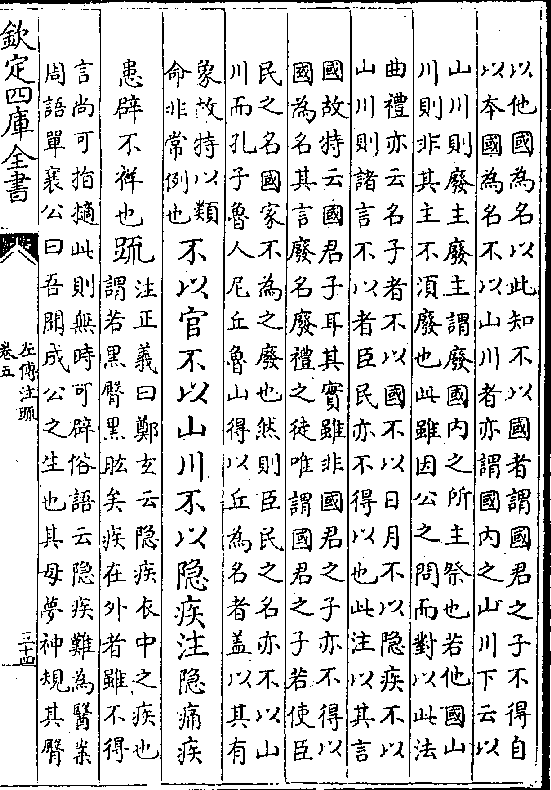 以他國為名以此知不以國者謂國君之子不得自
以本國為名不以山川者亦謂國內之山川下云以
山川則廢主廢主謂廢國內之所主祭也若他國山
川則非其主不須廢也此雖因公之問而對以此法
曲禮亦云名子者不以國不以日月不以隐疾不以
山川則諸言不以者臣民亦不得以也此注以其言
國故特云國君子耳其實雖非國君之子亦不得以
國為名其言廢名廢禮之徒唯謂國君之子若使臣
民之名國家不為之廢也然則臣民之名亦不以山
川而孔子魯人尼丘魯山得以丘為名者盖以其有
象故特以類
命非常例也不以官不以山川不以隐疾注隐痛疾
患辟不祥也疏注正義曰鄭玄云隐疾衣中之疾也
謂若黑臀黑肱矣疾在外者雖不得
言尚可指擿此則無時可辟俗語云隐疾難為醫案
周語單襄公曰吾聞成公之生也其母夢神規其臀
欽定四庫全書
左傳注疏
卷五
三十四